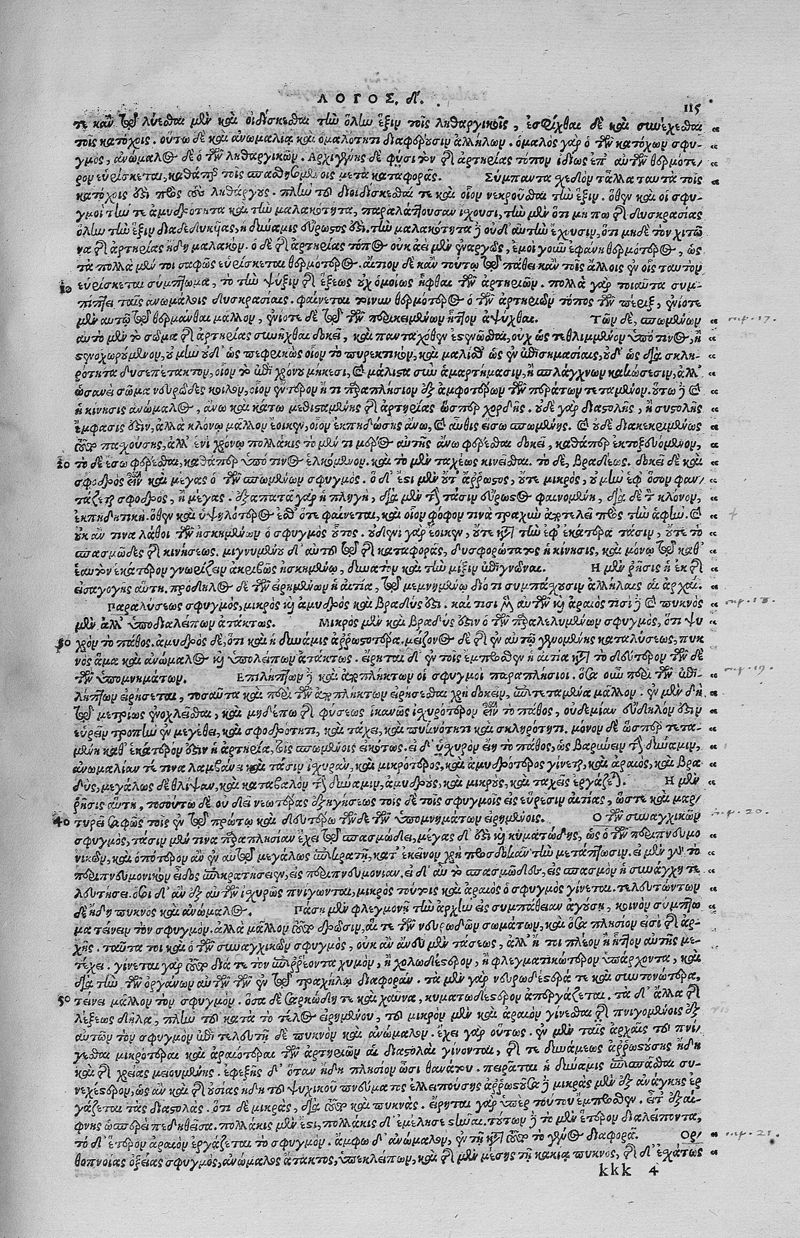 ΛΟΓΟΣ. Δ.
115
τε καὶ τῷ λύεσθαι μὲν καὶ οἰδίσκεσθαι τὴν ὅλην ἕξιν τοῖς ληθαργικοῖς, ἐσφίχθαι δὲ καὶ συνέχεσθαι
τοῖς κατόχοις. οὕτω δὲ καὶ ἀνωμαλίᾳ καὶ ὁμαλότητι διαφέρουσιν ἀλλήλων. ὁμαλὸς γὰρ ὁ τῶν κατόχων σφυ-
γμὸς, ἀνώμαλος δὲ ὁ τῶν ληθαργικῶν. Ἀρχιγένης δέ φησι τὸν τῆς ἀρτηρίας τόπον ἰδίως ἐπ' αὐτῶν θερμότε-
ρον εὑρίσκεται, καθάπερ τοῖς σπασθησομένοις μετὰ καταφορᾶς. Σύμπαντα σχεδὸν τἄλλα ταυτὰ τοῖς
κατόχοις ἐστὶ πλὴν τοῦ διοιδίσκεσθαί τε καὶ οἷον νεκροῦσθαι τὴν ἕξιν. ὅθεν καὶ οἱ σφυ-
γμοὶ τήν τε ἀμυδρότητα καὶ τὴν μαλακότητα, παραλλάττουσαν ἴσχουσι, τὴν μὲν ὅτι μήπω τῆς δυσκρασίας
ὅλην τὴν ἕξιν διαδεδυκυίας, ἡ δύναμις εὔρωστος ἐστι. τὴν μαλακότητα δὲ οὐδ' αὐτὴν ἔχουσιν, ὅτι μηδὲ τὸν χιτῶ-
να τῆς ἀρτηρίας ἤδη μαλακόν. ὁ δὲ τῆς ἀρτηρίας τόπος οὐκ ἀεὶ μὲν ἐναργῶς, ἐμοὶ γοῦν ἐφάνη θερμότερος, ὡς
τὰ πολλὰ μέντοι σαφῶς εὑρίσκεται θερμότερος. αἴτιον δὲ κἀν τούτῳ τῷ πάθει κἀν τοῖς ἄλλοις ἐν οἷς ταυτὸν
10 εὑρίσκεται σύμπτωμα, τὸ τὴν ψύξιν τῆς ἕξεως οὐχ ὁμοίως ἧφθαι τῶν ἀρτηριῶν. πολλὰ γὰρ τοιαῦτα συμ-
πίπτει ταῖς ἀνωμάλοις δυσκρασίαις. φαίνεται τοίνυν θερμότερος ὁ τῶν ἀρτηριῶν τόπος τῶν πέριξ, ἐνίοτε
μὲν αὐτῷ τῷ θερμᾶνθαι μᾶλλον, ἐνίοτε δὲ τῷ τῶν περικειμένων ἧττον ἀπεψῦχθαι. Τῶν δὲ, σπωμένων
αὐτὸ μὲν τὸ σῶμα τῆς ἀρτηρίας συνῆχθαι δοκεῖ, καὶ πανταχόθεν ἐστενῶσθαι, οὐχ ὡς τεθλιμμένον ὑπό τινος, ἢ
ὡς οἷον τὸ πυρεκτικὸν, καὶ μάλιστα ὡς ἐν ἐπισημασίαις, οὐδ' ὡς διὰ σκλη-
ρότητα δυσέπεκτατον, οἷον τὸ ἐπὶ χρόνου μήκεσι, καὶ μάλιστα σὺν ἁμαρτήμασιν, ἢ σπλάγχνων κακώσεσιν, ἀλλ'
ὡσανεὶ σῶμα νευρῶδες κοῖλον, οἷον ἔντερον ἤ τι παραπλήσιον ἐξ ἀμφοτέρων τῶν περάτων τεταμένον. οὕτω δὲ καὶ
ἡ κίνησις ἀνώμαλος, ἄνω καὶ κάτω μεθισταμένης τῆς ἀρτηρίας ὥσπερ χορδῆς. οὐδὲ γὰρ διαστολῆς, ἢ συστολῆς
ἔμφασίς ἐστιν, ἀλλὰ κλόνῳ μᾶλλον ἔοικεν, οἷον ἐκπηδώσης ἄνω, καὶ αὖθις εἴσω σπωμένης. καὶ οὐδὲ διακεκριμένως
πασχούσης, ἀλλ' ἑνὶ χρόνῳ πολλάκις τὸ μέν τι μέρος αὐτῆς ἄνω φέρεσθαι δοκεῖ, καθάπερ ἐκτοξευόμενον,
20 τὸ δὲ εἴσω φέρεσθαι, καθάπερ ὑπό τινος ἑλκόμενον. καὶ τὸ μὲν ταχέως κινεῖσθαι. τὸ δὲ, βραδέως. δοκεῖ δὲ καὶ
σφοδρὸς εἶναι καὶ μέγας ὁ τῶν σπωμένων σφυγμός. ὁ δ' ἐστὶ μὲν οὔτ' ἄρρωστος, οὔτε μικρὸς, οὐ μὴν ἐφ' ὅσον φαν-
τάζεται σφοδρὸς, ἢ μέγας. ἐξαπατᾷ γὰρ ἡ πληγὴ, διὰ μὲν τὴν τάσιν εὔρωστος φαινομένη, διὰ δὲ τὸν κλόνον,
ἐκπηδητική. ὅθεν καὶ ὑψηλότερος ἔσθ' ὅτε φαίνεται, καὶ οἷον ψόφον τινὰ τραχὺν ἀποτελεῖ πρὸς τὴν ἁφήν. καὶ
οὐκ ἄν τινα λάθοι τῶν ἠσκημένων ὁ σφυγμὸς οὗτος. οὐδενὶ γὰρ ἔοικεν, οὔτε κατὰ τὴν ἐφ' ἑκάτερα τάσιν, οὔτε τὸ
σπασμῶδες τῆς κινήσεως. μιγνυμένου δ' αὐτῷ τοῦ τῆς καταφορᾶς, δυσφορώτατος ἡ κίνησις, καὶ μόνῳ τῷ καθ'
ἑαυτὸν ἑκάτερον γνωρίζειν ἀκριβῶς ἠσκημένῳ, δυνατὸν καὶ τὴν μίξιν ἐπιγνῶναι. Ἡ μὲν ῥῆσις ἡ ἐκ τῆς
εἰσαγωγῆς αὕτη. πρόδηλος δὲ τῶν εἰρημένων ἡ αἰτία, τῷ μεμνημένῳ διότι συμπάσχουσιν ἀλλήλαις αἱ ἀρχαί.
Παραλύσεως σφυγμὸς, μικρὸς καὶ ἀμυδρὸς καὶ βραδύς ἐστι. καί τισι μὲν αὐτῶν καὶ ἀραιὸς τισὶ δὲ καὶ πυκνὸς
μὲν ἀλλ' ὑποδιαλείπων ἀτάκτως. Μικρὸς μὲν καὶ βραδύς ἐστιν ὁ τῶν παραλελυμένων σφυγμὸς, ὅτι ψυ-
30 χρὸν τὸ πάθος. ἀμυδρὸς δὲ, ὅτι καὶ ἡ δύναμις ἀρρωστοτέρα. μείζονος δὲ τῆς ἐν αὐτῷ γινομένης καταλύσεως, πυκ-
νὸς ἅμα καὶ ἀνώμαλος καὶ ὑπολείπων ἀτάκτως. εἴρηται δ' ἐν τοῖς ἔμπροσθεν ἡ αἰτία κατὰ τὸ δεύτερον τῶν δὲ
τῶν ὑπομνημάτων. Ἐπιλήπτων δὲ καὶ ἀποπλήκτων οἱ σφυγμοὶ παραπλήσιοι. ὅσα οὖν περὶ τῶν ἐπι-
λήπτων εἰρήσεται, τοσαῦτα καὶ περὶ τῶν ἀποπλήκτων εἰρῆσθαι χρὴ δοκεῖν, ἐπιτεταμένα μᾶλλον. ἐν μὲν δὴ
τῷ μετρίως ἐνοχλεῖσθαι, καὶ μηδέπω τῆς φύσεως ἱκανῶς ἰσχυρότερον εἶναι τὸ πάθος, οὐδεμίαν εὔδηλόν ἐστιν
εὑρεῖν τροπὴν ἐν μεγέθει, καὶ σφοδρότητι, καὶ τάχει, καὶ πυκνότητι καὶ σκληρότητι. μόνον δὲ ὥσπερ τετα-
μένη καθ' ἑκάτερόν ἐστιν ἡ ἀρτηρία, τοῖς σπωμένοις εἰκότως. εἰ δ' ἰσχυρὸν εἴη τὸ πάθος, ὡς βαρύνειν τὴν δύναμιν,
ἀνωμαλίαν τέ τινα λαμβάνει καὶ τάσιν ἰσχυρὰν, καὶ μικρότερος, καὶ ἀμυδρότερος γίνεται, καὶ ἀραιὸς, καὶ βρα-
δύς, μεγάλως δὲ θλῖψαν, καὶ καταβαλὸν τὴν δύναμιν, ἀμυδροὺς, καὶ μικροὺς, καὶ ταχεῖς ἐργάζεται. Ἡ μὲν
ῥῆσις αὕτη, τοσούτῳ δὲ οὐ δεῖ νεωτέρας ἐξηγήσεως τοῖς δὲ τοῖς σφυγμοῖς εἰς εὕρεσιν αἰτίας, ὥστε καὶ μαρ-
40 τυρεῖ σαφῶς τοῖς ἐν τῷ πρώτῳ καὶ δευτέρῳ τῶν δὲ τῶν ὑπομνημάτων εἰρημένοις. Ὁ τῶν συναγχικῶν
σφυγμὸς, τάσιν μέν τινα παραπλησίαν ἔχει τῷ σπασμώδει, μέγας δ' ἐστὶ καὶ κυματώδης, ὡς ὁ τῶν περιπνευμο-
νικῶν, καὶ ὁπότερον ἂν ἐν αὐτῷ μεγάλως ἐπικρατῇ, κατ' ἐκεῖνον χρὴ προσδοκᾶν τὴν μετάπτωσιν. εἰ μὲν γὰρ τὸ
περιπνευμονικὸν εἶδος ἐπικρατήσειεν, εἰς περιπνευμονίαν. εἰ δ' αὖ τὸ σπασμῶδες, εἰς σπασμὸν ἡ συνάγχη τε-
λευτήσει. ὅσοι δ' ἂν ἐξ αὐτῶν ἰσχυρῶς πνίγωνται, μικρὸς τούτοις καὶ ἀραιὸς ὁ σφυγμὸς γίνεται. τελευτώντων
δὲ ἤδη πυκνὸς καὶ ἀνώμαλος. Πάσῃ μὲν φλεγμονῇ τὴν ἀρχὴν εἰς συμπάθειαν ἀγούσῃ, κοινὸν σύμπτω-
μα τείνειν τὸν σφυγμόν. ἀλλὰ μᾶλλον τοῦτο δρῶσιν, αἵ τε τῶν νευρωδῶν σωμάτων, καὶ ὅσα πλησίον εἰσὶ τῆς ἀρ-
χῆς. ταῦτά τοι καὶ ὁ τῶν συναγχικῶν σφυγμὸς, οὐκ ἄνευ μὲν τάσεως, ἀλλ' ἤτοι πλέον ἢ ἧττον αὐτῆς με-
τέχει. γίνεται γὰρ τοῦτο διά τε τὸν ἐπιρρέοντα χυμὸν, ἢ χολωδέστερον, ἢ φλεγματικώτερον ὑπάρχοντα, καὶ
διὰ τὴν τῶν ὀργάνων αὐτῶν τῶν ἐν τῷ τραχήλῳ διαφοράν. τὰ μὲν γὰρ νευρωδέστερά τε καὶ συντονώτερα,
50 τείνει μᾶλλον τὸν σφυγμόν. ὅσα δὲ σαρκώδη τε καὶ χαῦνα, κυματωδέστερον ἀπεργάζεται. τὰ δ' ἄλλα τῆς
λέξεως δῆλα, πλὴν τοῦ κατὰ τὸ τέλος εἰρημένου, τοῦ μικρὸν μὲν καὶ ἀραιὸν γίνεσθαι τῆς πνιγομένοις ἐξ
αὐτῶν τὸν σφυγμὸν ἐπὶ τελευτῇ δὲ πυκνὸν καὶ ἀνώμαλον. ἔχει γὰρ οὕτως. ἐν μὲν ταῖς ἀρχαῖς τοῦ πνί-
γεσθαι μικρότεραι καὶ ἀραιότεραι τῶν ἀρτηριῶν αἱ διαστολαὶ γίνονται, τῆς τε δυνάμεως ἀρρωστούσης ἤδη
καὶ τῆς χρείας μειουμένης. ἐφεξῆς δ' ὅταν ἤδη πλησίον ὦσι θανάτου. πειρᾶται ἡ δύναμις ἐπισπᾶσθαι συ-
νεχέστερον, ὡς ἂν καὶ τῆς οὐσίας ἤδη τοῦ ψυχικοῦ πνεύματος ἐλλειπούσης ἀρρωστία δὲ μικρὰς μὲν ἐξ ἀνάγκης ἐρ-
γάζεται τὰς διαστολάς. ὅτι δὲ μικρὰς, διὰ τοῦτο καὶ πυκνάς. εἴρηται γὰρ ὑπὲρ τούτου ἔμπροσθεν, εἶτ' ἐξαί-
φνης ὥσπερ πεδηθεῖσα. πολλάκις μὲν ἔτι, πολλάκις δ' ἐμέλησε τούτων δὲ τὸ μὲν ἕτερον διαλείποντα,
τὸ δ' ἕτερον ἀραιὸν ἐργάζεται τὸ σφυγμόν. ἄμφω δ' ἀνώμαλον, ἐν τῇ κατὰ τοῦτο τὸ γένος διαφορᾷ. Ὀρ-
θοπνοίας ὀξείας σφυγμὸς, ἀνώμαλος ἄτακτος, ὑπεκλείπων, καὶ τῆς μὲν μέσης τῇ κακίᾳ πυκνὸς, τῆς δ' ἐσχάτως
kkk 4